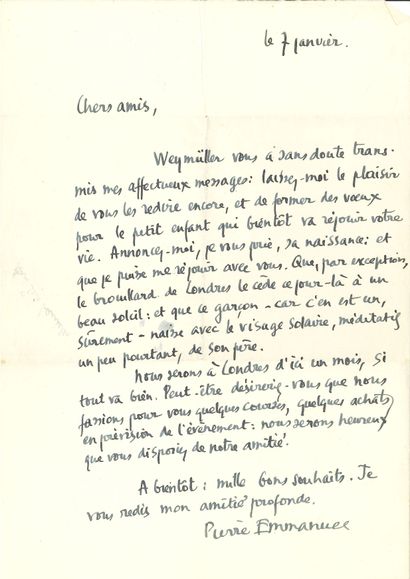 le 7 janvier.
Chers amis,
Weymüller vous a sans doute trans-
mis mes affectueux messages : laissez-moi le plaisir
de vous les redire encore, et de former des vœux
pour le petit enfant qui bientôt va réjouir votre
vie. Annoncez-moi, je vous prie, sa naissance : et
que je puisse me réjouir avec vous. Que, par exception,
le brouillard de Londres le cède ce jour-là à un
beau soleil : et que ce garçon - car c'en est un,
sûrement - naisse avec le visage solaire, méditatif
un peu pourtant, de son père.
Nous serons à Londres d'ici un mois, si
tout va bien. Peut-être désirerez-vous que nous
fassions pour vous quelques courses, quelques achats
en prévision de l'évènement : nous serons heureux
que vous disposiez de notre amitié.
A bientôt : mille bons souhaits. Je
vous redis mon amitié profonde.
Pierre Emmanuel